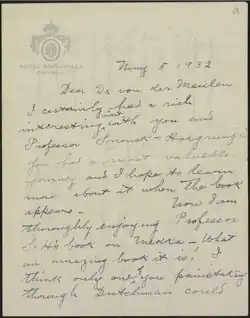 Nov 5 1932
Dear Dr van der Meulen
I certainly had a rich
interesting visit with you and
Professor Snouck-Hurgronje
You had a most valuable
journey and I hope to learn
more about it when the book
appears. Now I am
thoroughly enjoying Professor
S-H's book on Mekka - What
an amazing book it is! I
think only one of you painstaking
thorough Dutchmen could